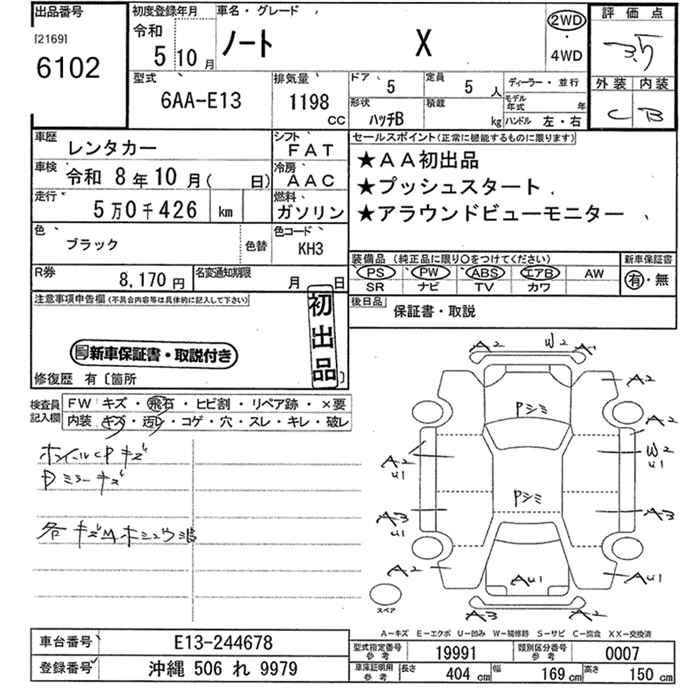 出品番号
[2169]
6102
初度登録年月
令和
5 10 月
車名・グレード
ノート X
2WD
・
4WD
評価点
3.5
外装 内装
C B
型式
6AA-E13
排気量
1198 CC
ドア 5
定員 5 人
形状 ハッチB
積載 kg
ディーラー・並行
モデル年式 年
ハンドル 左・右
車歴 レンタカー
シフト FAT
車検 令和 8年10月( 日)
冷房 AAC
走行 5万0千426 km
燃料 ガソリン
色 ブラック 色替
色コード KH3
R券 8,170円
名変通知期限 月 日
セールスポイント(正常に機能するものに限ります)
★AA初出品
★プッシュスタート
★アラウンドビューモニター
装備品(純正品に限り○をつけてください)
新車保証書
PS PW ABS エアB AW
SR ナビ TV カワ
有・無
後日品 保証書・取説
注意事項申告欄(不具合内容等は具体的に記入して下さい)
初出品
新車保証書・取説付き
修復歴 有〔箇所 〕
検査員記入欄
FW キズ・飛石・ヒビ割・リペア跡・×要
内装 キズ・汚レ・コゲ・穴・スレ・キレ・破レ
ホイールCPキズ
Dミラーキズ
A2 W2 A1
A2
Pシミ
A2
A2 U1
W2 U1
Pシミ
A3 U1
A3
A2
AU1
AU1
A3 A2
スペア
A-キズ E-エクボ U-凹み W-補修跡 S-サビ C-腐食 XX-交換済
車台番号 E13-244678
登録番号 沖縄 506 れ 9979
型式指定番号 参考 19991
類別区分番号 参考 0007
車庫証明用 参考 長さ 404 cm 幅 169 cm 高さ 150 cm